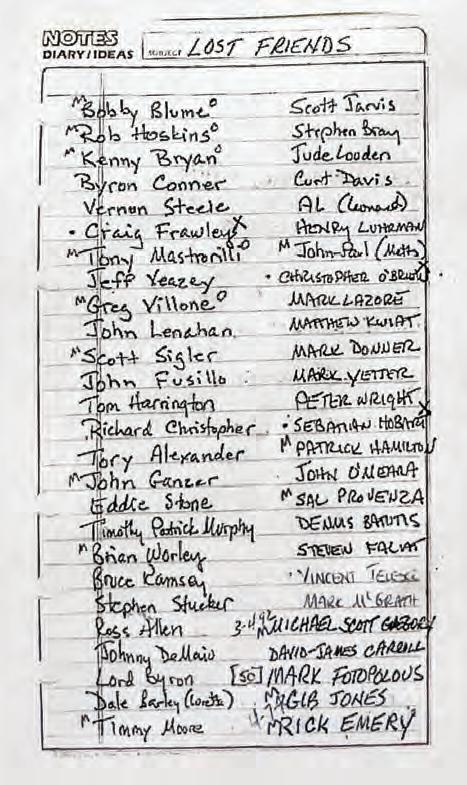 NOTES
DIARY/IDEAS SUBJECT LOST FRIENDS
M Bobby Blume o
M Rob Hoskins o
M Kenny Bryan o
Byron Conner
Vernon Steele
• Craig Frawley x
M Tony Mastrorilli o
Jeff Veazey
M Greg Villone o
John Lenahan
M Scott Sigler
John Fusillo
Tom Harrington
Richard Christopher
Tory Alexander
M John Ganzer
Eddie Stone
Timothy Patrick Murphy
M Brian Worley
Bruce Ramsey
Stephen Stucker
Ross Allen
Johnny DeMaio
Lord Byron
Dale Barley (Loretta)
M Timmy Moore
Scott Jarvis
Stephen Bray
Jude Louden
Curt Davis
AL (Leonard)
HENRY LUHRMAN
M John-Paul
• CHRISTOPHER O'BRIEN x
MARK LAZORE
MATTHEW KWIAT
MARK DONNER
MARK YETTER
PETER WRIGHT
• SEBATIAN HOBART x
M PATRICK HAMILTON
JOHN O'MEARA
M SAL PROVENZA
DENNIS BATUTIS
STEVEN FALAT
• VINCENT
MARK McGRATH
M MICHAEL SCOTT
DAVID-JAMES CARROLL
[50] MARK FOTOPOLOUS
M GIB JONES
M RICK EMERY